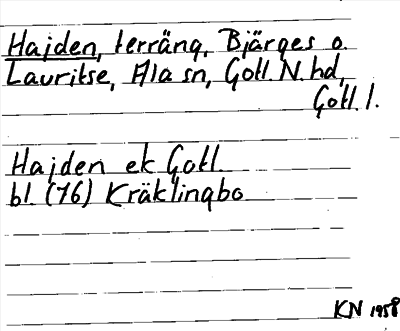 Hajden, terräng, Bjärges o.
Lauritse, Ala sn, Gotl. N. hd,
Gotl. l.
Hajden ek Gotl.
bl. (76) Kräklingbo
KN 1958